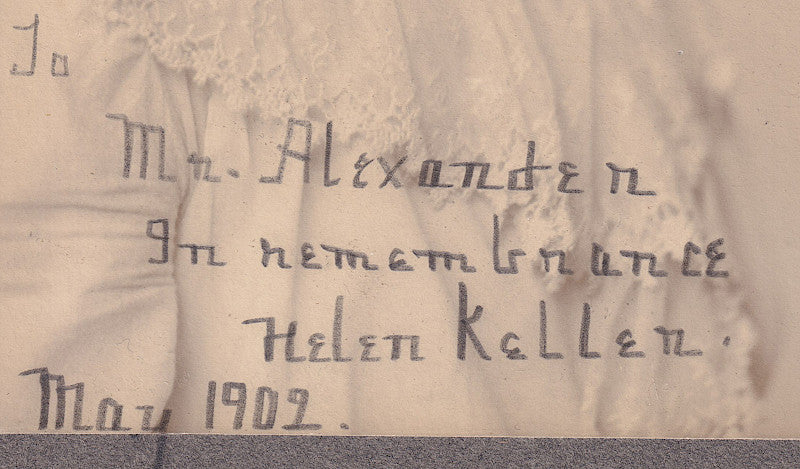 To
Mr. Alexander
In remembrance
Helen Keller.
May 1902.